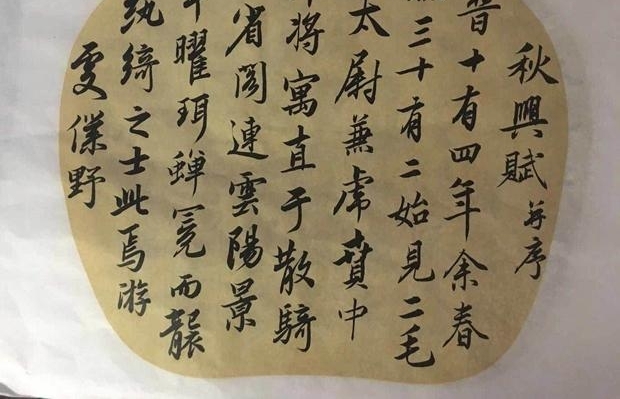 秋興賦并序
晉十有四年余春
三十有二始見二毛
太尉兼虎賁中
將寓直于散騎
省閣連雲陽景
曜珥蟬冕而襲
紈綺之士此焉游
處僕野